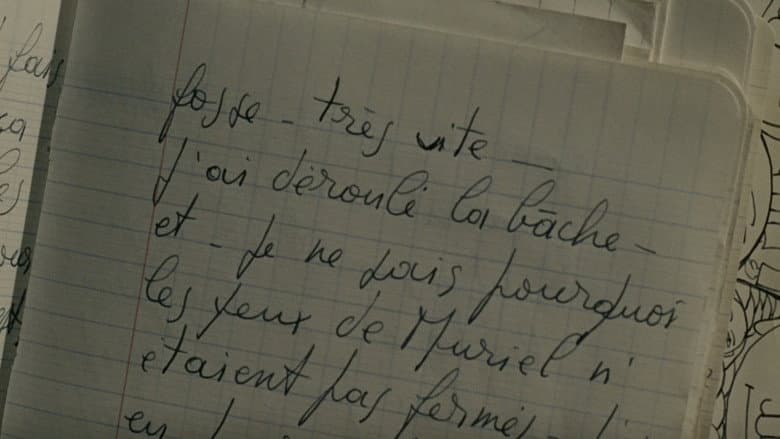 fosse - très vite -
J'ai déroulé la bâche -
et - je ne sais pourquoi
les yeux de Muriel n'
étaient pas fermés -
en